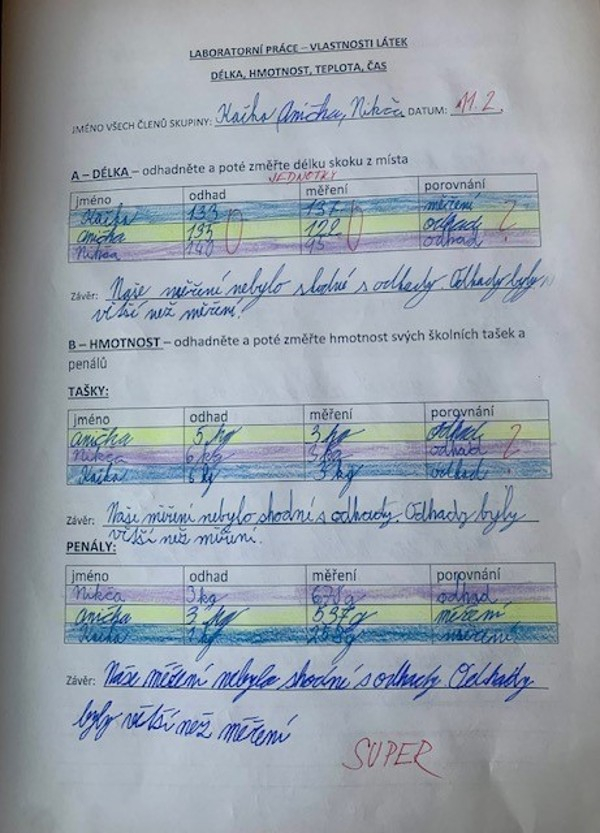 LABORATORNÍ PRÁCE – VLASTNOSTI LÁTEK
DÉLKA, HMOTNOST, TEPLOTA, ČAS
JMÉNO VŠECH ČLENŮ SKUPINY: Kačka Anička, Nikča DATUM: 11.2.
A – DÉLKA – odhadněte a poté změřte délku skoku z místa
JEDNOTKY
jméno odhad měření porovnání
Kačka 133 137 měření
Anička 135 122 odhad ?
Nikča 140 95 odhad
Závěr: Naše měření nebylo shodné s odhady. Odhady byly
větší než měření.
B – HMOTNOST – odhadněte a poté změřte hmotnost svých školních tašek a
penálů
TAŠKY:
jméno odhad měření porovnání
Anička 5 kg 3 kg odhad ?
Nikča 6 kg 3 kg odhad
Kačka 6 kg 3 kg odhad
Závěr: Naše měření nebylo shodné s odhady. Odhady byly
větší než měření.
PENÁLY:
jméno odhad měření porovnání
Nikča 3 kg odhad
Anička 537g měření
Kačka měření
Závěr: Naše měření nebylo shodné s odhady. Odhady
byly větší než měření
SUPER